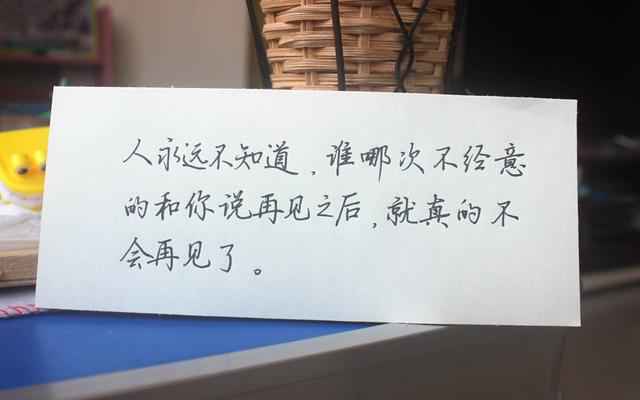 人永远不知道，谁哪次不经意
的和你说再见之后，就真的不
会再见了。